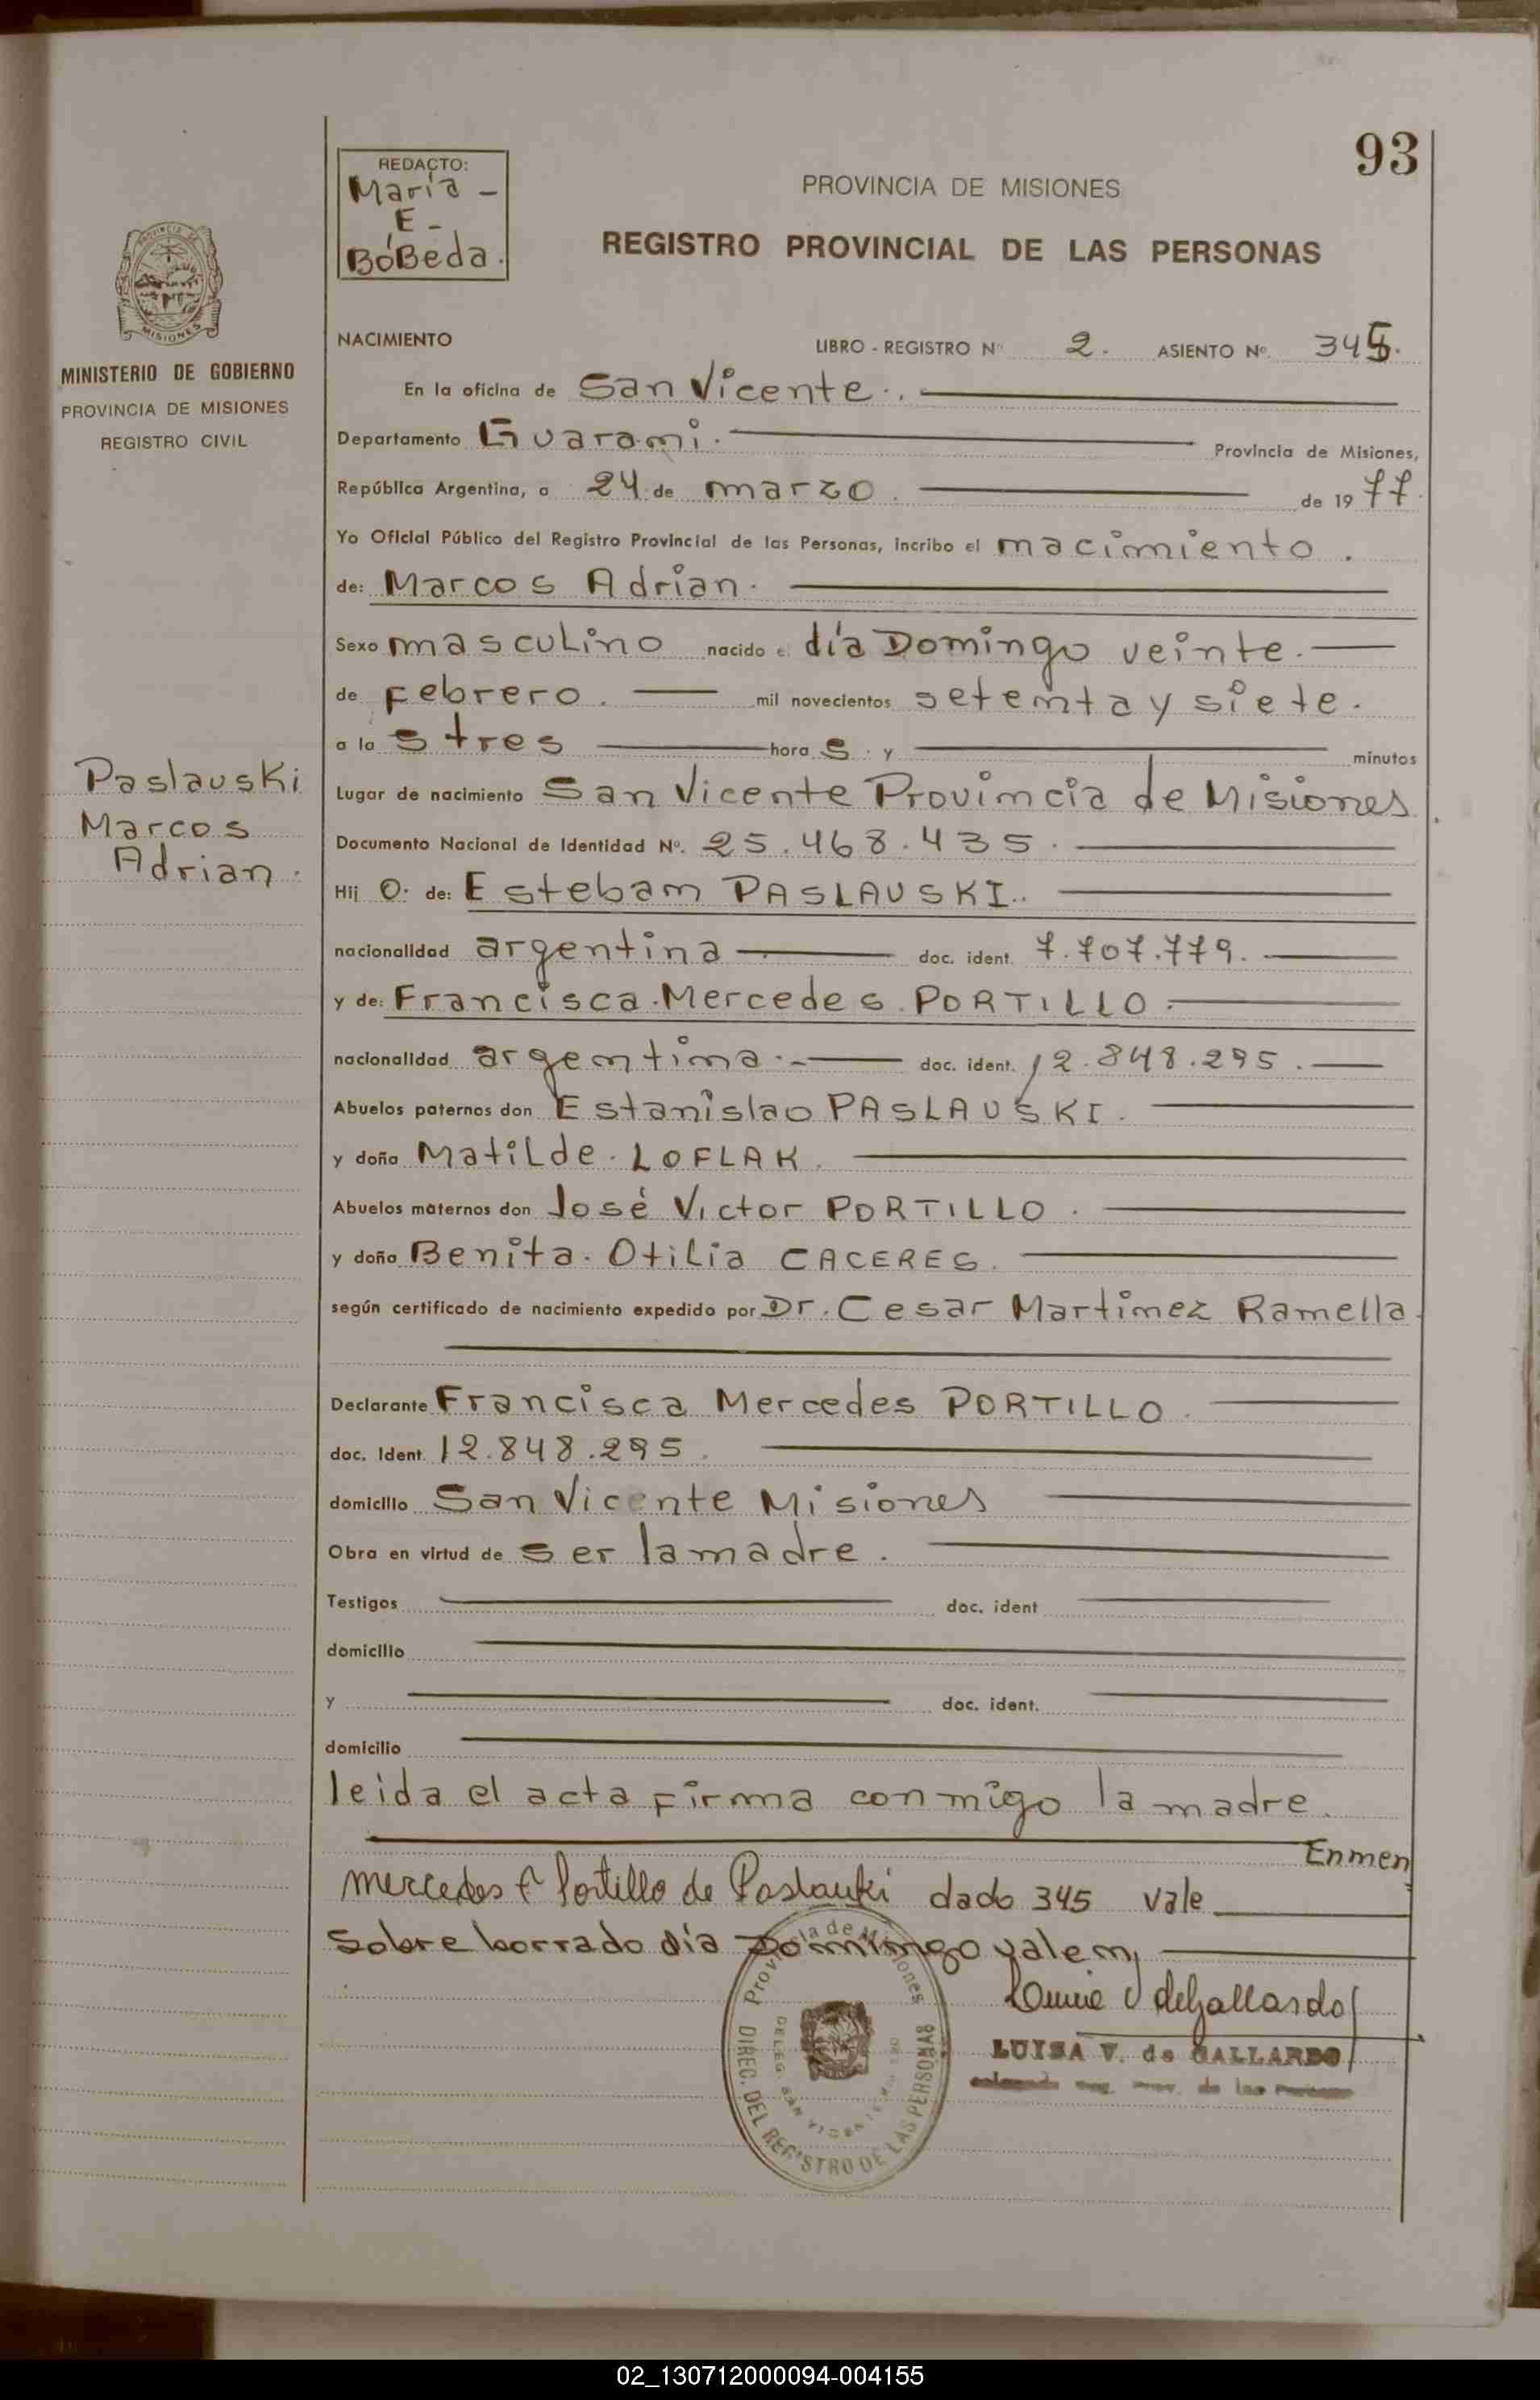 93
REDACTO:
María -
E -
BóBeda.
PROVINCIA DE MISIONES
REGISTRO PROVINCIAL DE LAS PERSONAS
PROVINCIA DE
MISIONES
MINISTERIO DE GOBIERNO
PROVINCIA DE MISIONES
REGISTRO CIVIL
NACIMIENTO LIBRO - REGISTRO Nº 2. ASIENTO Nº. 345.
En la oficina de San Vicente.
Departamento Guarami. Provincia de Misiones,
República Argentina, a 24 de marzo. de 1977.
Yo Oficial Público del Registro Provincial de las Personas, incribo el macimiento.
de: Marcos Adrian.
Sexo masculino nacido e día Domingo veinte.
de Febrero. mil novecientos setemta y siete.
a las tres horas y minutos
Paslauski
Marcos
Adrian.
Lugar de nacimiento San Vicente Provimcia de Misiones
Documento Nacional de Identidad Nº. 25.468.435.
Hijo. de: Estebam PASLAUSKI.
nacionalidad argentina doc. ident. 7.707.779.
y de: Francisca Mercedes PORTILLO.
nacionalidad argemtima. doc. ident. 12.848.295.
Abuelos paternos don Estanislao PASLAUSKI.
y doña Matilde. LOFLAK.
Abuelos maternos don José Victor PORTILLO.
y doña Benita. Otilia CACERES.
según certificado de nacimiento expedido por Dr. Cesar Martimez Ramella
Declarante Francisca Mercedes PORTILLO.
doc. Ident. 12.848.295.
domicilio San Vicente Misiones
Obra en virtud de ser la madre.
Testigos doc. ident
domicilio
y doc. ident.
domicilio
leida el acta firma conmigo la madre.
Enmen
mercedes F Portillo de Paslauski dado 345 vale
Sobre borrado día Domimgo valem,
V deGallardo
LUISA V. de GALLARDO
de las
Provincia de Misiones
DIREC. DEL REGISTRO DE LAS PERSONAS
DELEG. SAN VICENTE
02_130712000094-004155